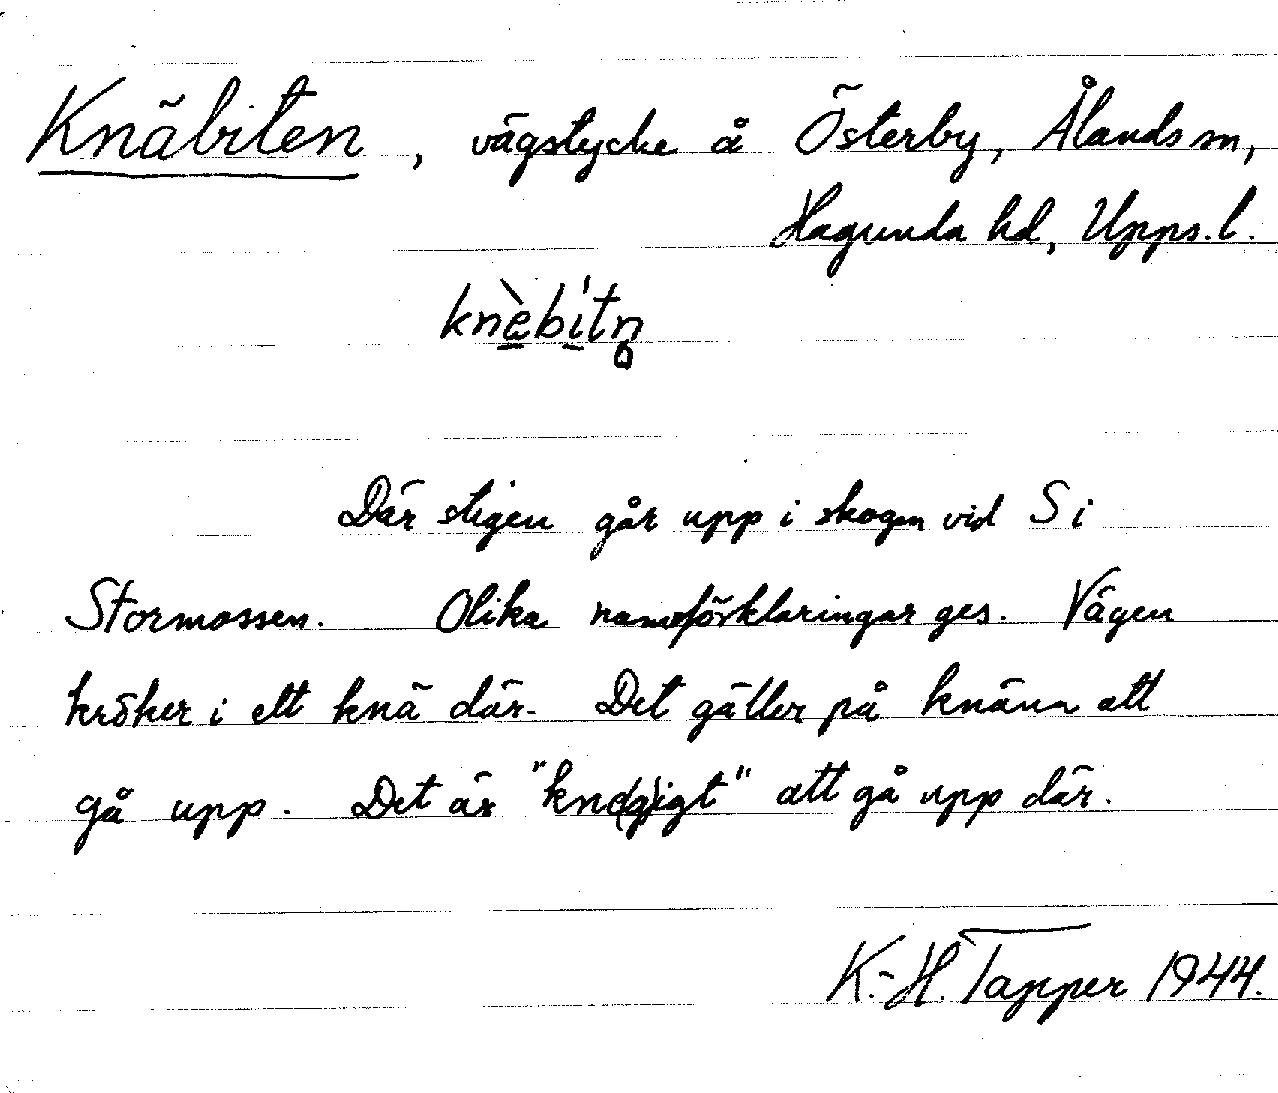 Knäbiten, vägstycke å Österby, Ålands sn,
Hagunda hd, Upps. l.
knè̠bi̠tn̥
Där stigen går upp i skogen vid S i
Stormossen. Olika namnförklaringar ges. Vägen
kröker i ett knä där. Det gäller på knäna att
gå upp. Det är "kne(g)igt" att gå upp där.
K.-H. Tapper 1944.